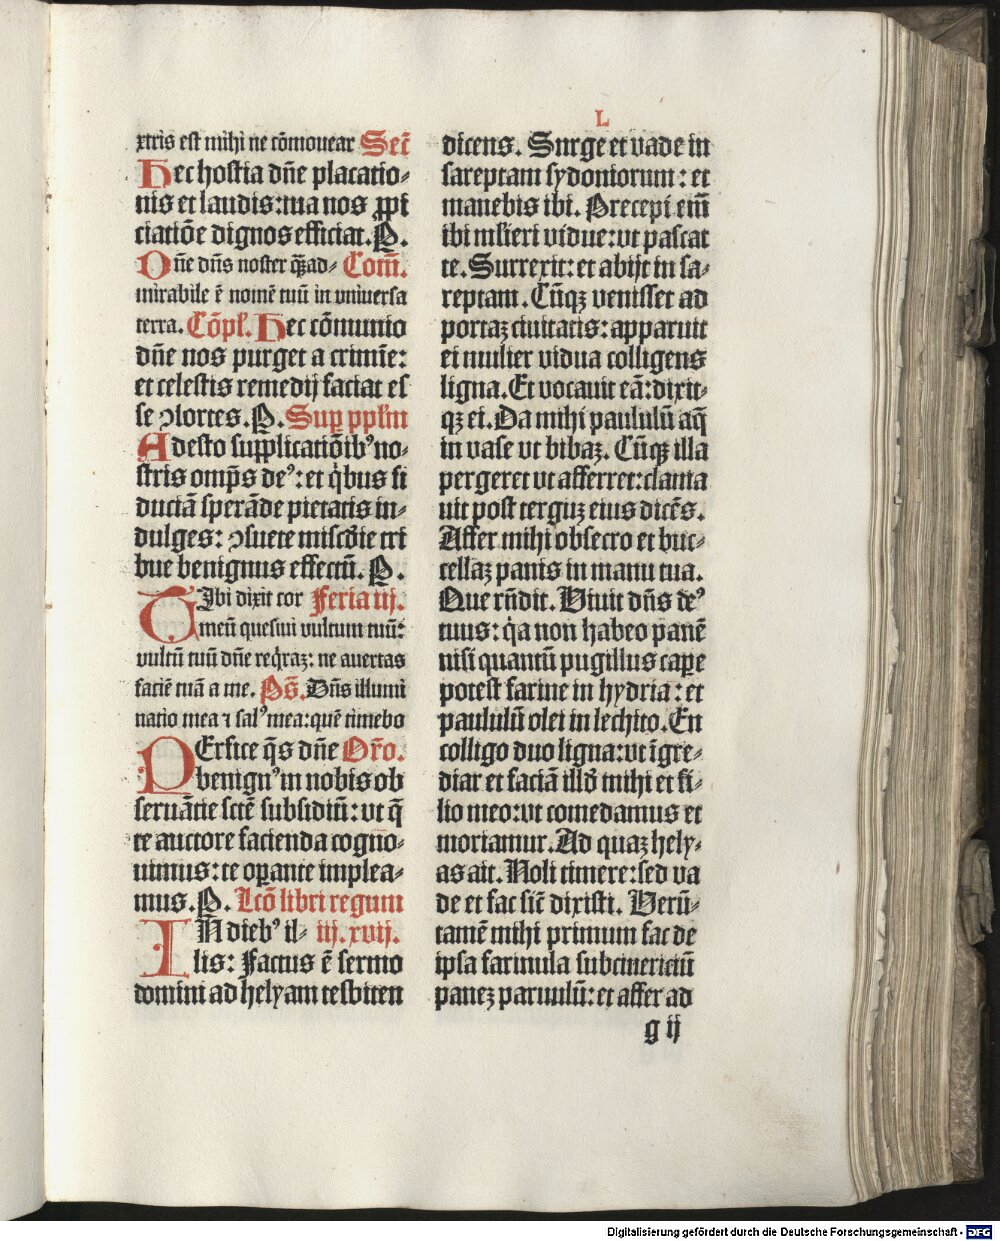 L
xtris est mihi ne cōmouear Secr̄
Hec hostia dn̄e placatio⸗
nis et laudis: tua nos ꝓpi
ciatiōe dignos efficiat. P.
One dn̄s noster q̄ꝫ ad⸗ Com̄.
mirabile ē nomē tuū in vniuersa
terra. Cōpl. Hec cōmunio
dn̄e nos purget a crimīe:
et celestis remedij faciat es
se ꝯsortes. P. Suꝑ ppl̄m
Adesto supplicatiōibꝰ no⸗
stris omp̄s deꝰ: et q̇bus fi
duciā sperāde pietatis in⸗
dulges: ꝯsuete mīscd̄ie tri
bue benignus effectū. P.
Tibi dixit cor Feria iij.
meū quesiui vultum tuū:
vultū tuū dn̄e reqͥraꝫ: ne auertas
faciē tuā a me. Ps̄. Dn̄s illumi
natio mea ⁊ salꝰ mea: quē timebo
PErfice q̄s dn̄e Or̄o.
benignꝰ in nobis ob
seruātie scē̄ subsidiū: vt q̄
te auctore facienda cogno⸗
uimus: te oꝑante implea⸗
mus. P. Lcō libri regum
IN diebꝰ il⸗ iij. xvij.
lis: Factus ē sermo
domini ad helyam tesbiten
dicens. Surge et vade in
sareptam sydoniorum: et
manebis ibi. Precepi em̄
ibi mlieri vidue: vt pascat
te. Surrexit: et abijt in sa⸗
reptam. Cūqꝫ venisset ad
portaꝫ ciuitatis: apparuit
ei mulier vidua colligens
ligna. Et vocauit eā: dixit⸗
qꝫ ei. Da mihi paululū aq̄
in vase vt bibaꝫ. Cūqꝫ illa
pergeret vt afferret: clama
uit post terguꝫ eius dicēs.
Affer mihi obsecro et buc⸗
cellaꝫ panis in manu tua.
Que rn̄dit. Viuit dn̄s deꝰ
tuus: q̇a non habeo panē
nisi quantū pugillus caꝑe
potest farine in hydria: et
paululū olei in lechito. En
colligo duo ligna: vt īgre⸗
diar et faciā illd̄ mihi et fi⸗
lio meo: vt comedamus et
moriamur. Ad quaꝫ hely⸗
as ait. Noli timere: sed va
de et fac sic̄ dixisti. Verū⸗
tamē mihi primum fac de
ipsa farinula subcinericiū
paneꝫ paruulū: et affer ad
g ij
Digitalisierung gefördert durch die Deutsche Forschungsgemeinschaft - DFG